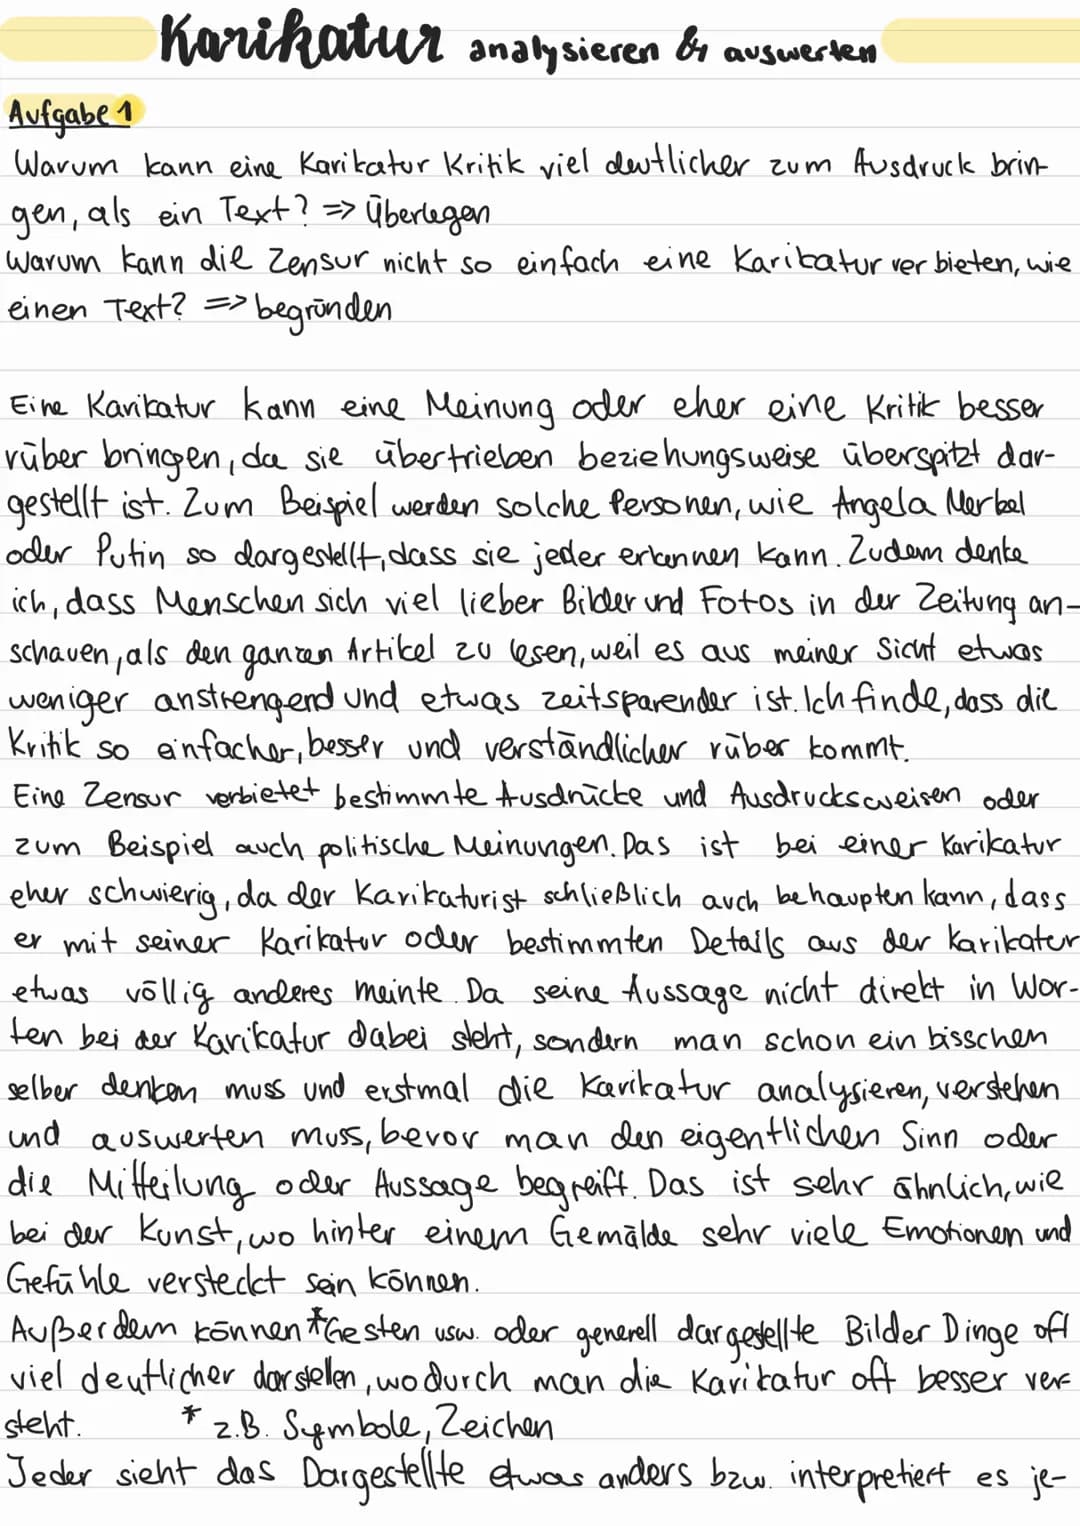 Karikatur analysieren & auswerten
Aufgabe 1
Warum kann eine Karikatur Kritik viel deutlicher zum Ausdruck brin-
gen, als ein Text? => überlegen
Warum kann die Zensur nicht so einfach eine Karikatur verbieten, wie
einen Text? => begründen
Eine Karikatur kann eine Meinung oder eher eine Kritik besser
rüber bringen, da sie übertrieben beziehungsweise überspitzt dar-
gestellt ist. Zum Beispiel werden solche Personen, wie Angela Merkel
oder Putin so dargestellt, dass sie jeder erkennen kann. Zudem denke
ich, dass Menschen sich viel lieber Bilder und Fotos in der Zeitung an-
schauen, als den ganzen Artikel zu lesen, weil es aus meiner Sicht etwas
weniger anstrengend und etwas zeitsparender ist. Ich finde, dass die
Kritik so einfacher, besser und verständlicher rüber kommt.
Eine Zensur verbietet bestimmte Ausdrücke und Ausdrucksweisen oder
zum Beispiel auch politische Meinungen. Das ist bei einer Karikatur
eher schwierig, da der Karikaturist schließlich auch behaupten kann, dass
er mit seiner Karikatur oder bestimmten Details aus der Karikatur
etwas völlig anderes meinte. Da seine Aussage nicht direkt in Wor-
ten bei der Karikatur dabei steht, sondern man schon ein bisschen
selber denken muss und erstmal die Karikatur analysieren, verstehen
und auswerten muss, bevor man den eigentlichen Sinn oder
die Mitteilung oder Aussage begreift. Das ist sehr ähnlich, wie
bei der Kunst, wo hinter einem Gemälde sehr viele Emotionen und
Gefühle versteckt sein können.
Außerdem können *Gesten usw. oder generell dargestellte Bilder Dinge oft
viel deutlicher darstellen, wodurch man die Karikatur oft besser ver
steht. * z.B. Symbole, Zeichen
Jeder sieht das Dargestellte etwas anders bzw. interpretiert es je-